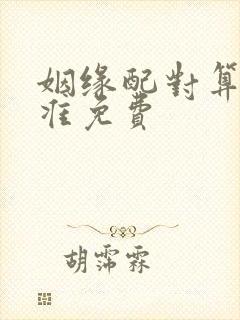 姻缘配對算
准免費
胡霈霖